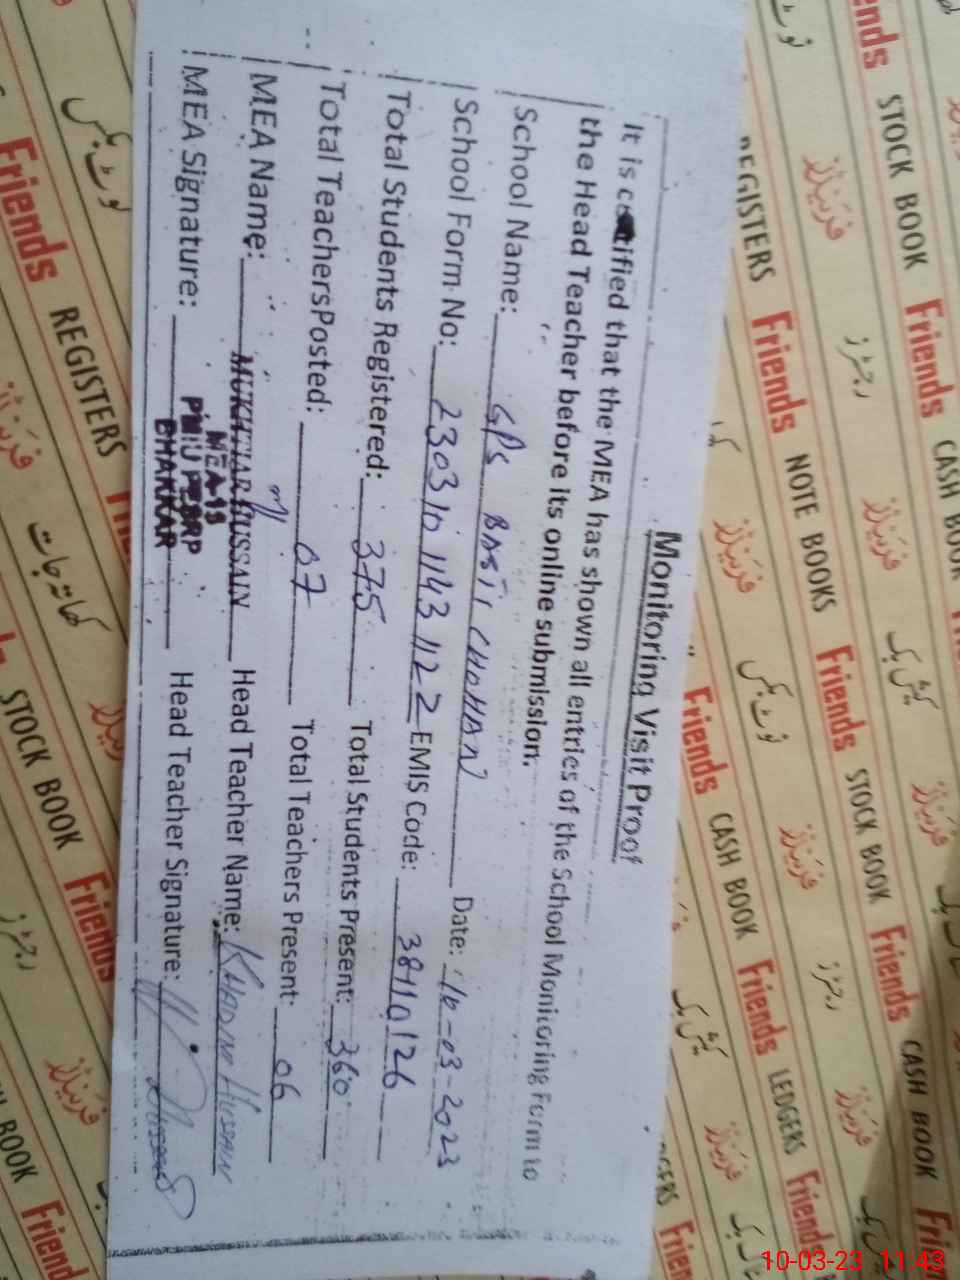 Monitoring Visit Proof
It is certified that the MEA has shown all entries of the School Monitoring Form to
the Head Teacher before its online submission.
School Name: GPS BASTI CHOHAN Date: 10-03-2023
School Form No: 23031011431122 EMIS Code: 38110126
Total Students Registered: 375 Total Students Present: 360
Total TeachersPosted: 07 Total Teachers Present: 06
MEA Name: MUKHTIAR HUSSAIN Head Teacher Name: KHADIM HUSSAIN
MEA-13
PMIU PESRP
BHAKKAR
MEA Signature: Head Teacher Signature:
Friends REGISTERS
Friends STOCK BOOK
Friends CASH BOOK
Friends NOTE BOOKS
Friends LEDGERS
فرینڈز
نوٹ بکس
رجسٹرز
کیش بک
کھاتہ جات
10-03-23 11:43